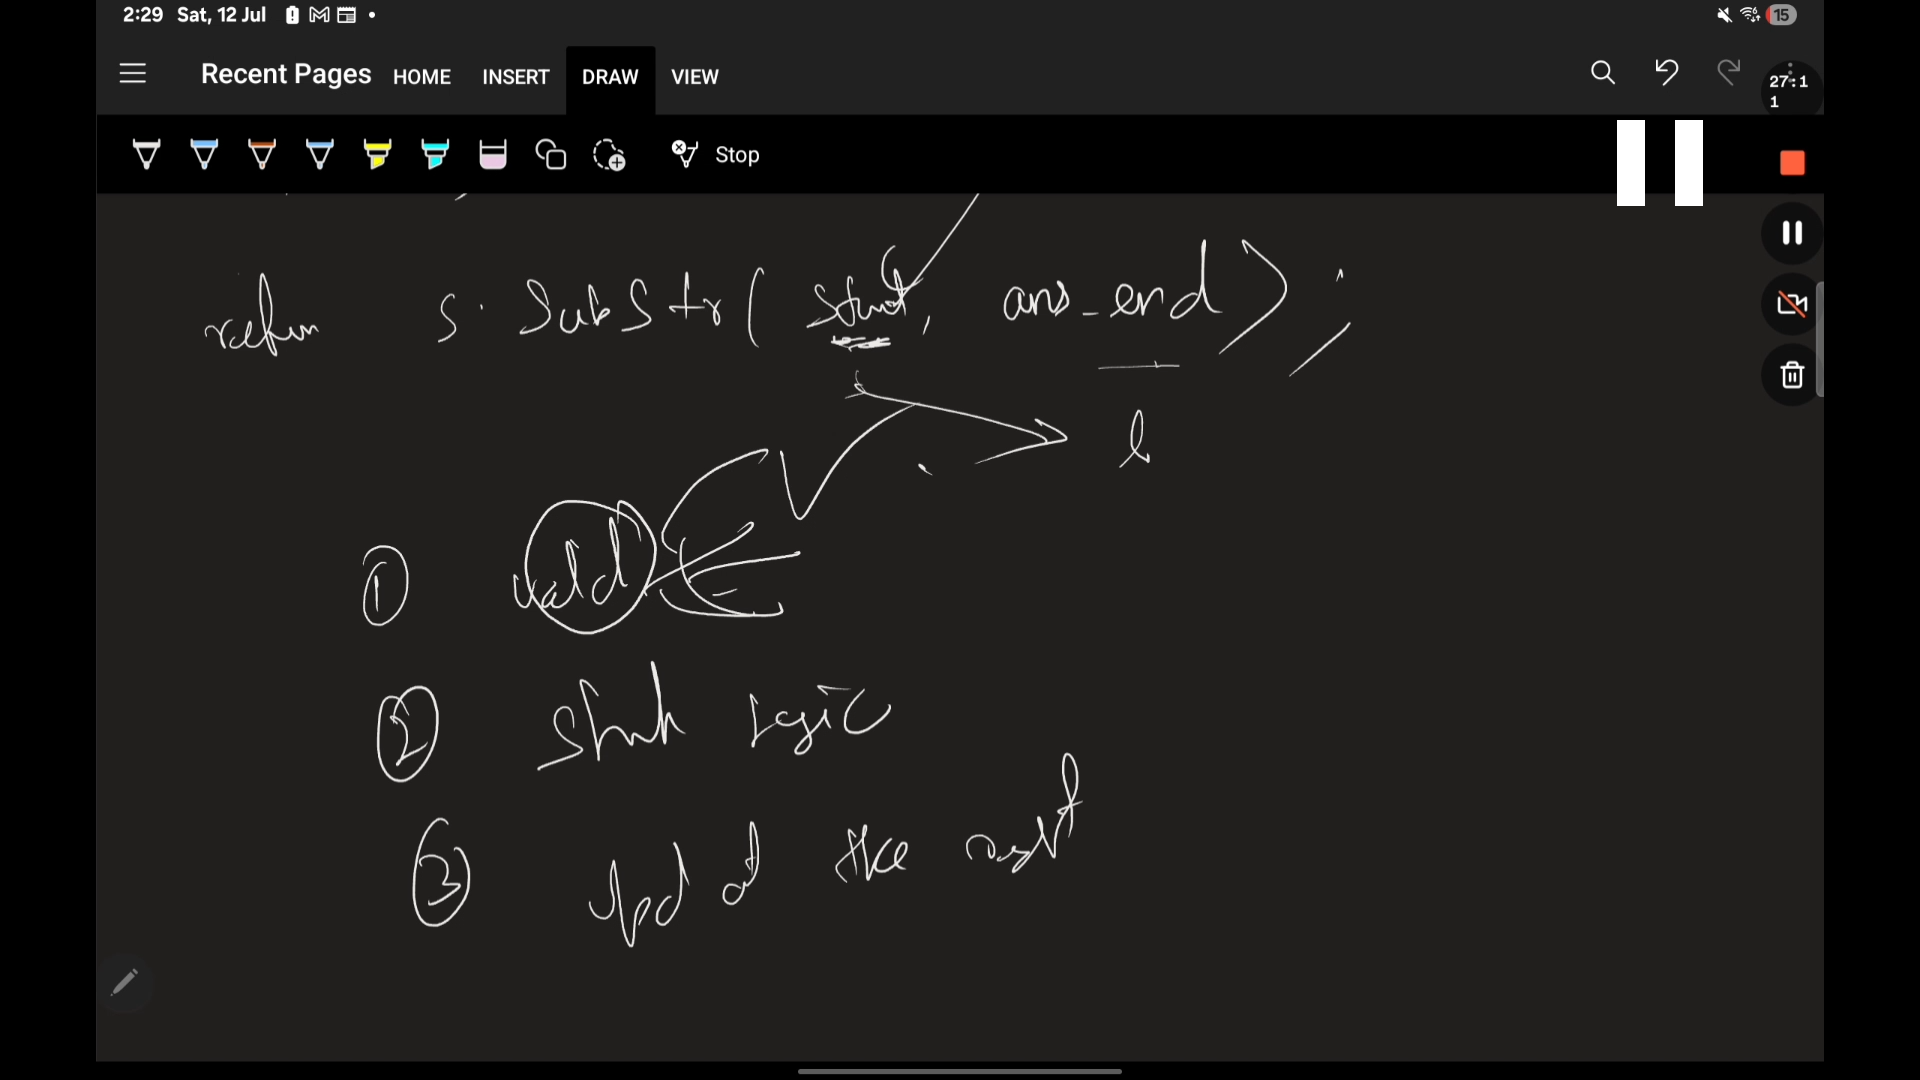 2:29 Sat, 12 Jul 15
Recent Pages HOME INSERT DRAW VIEW
27:1
1
Stop
return s. SubStr( start, ans_end);
l
① valid
② Shrink Logic
③ Upd at the right